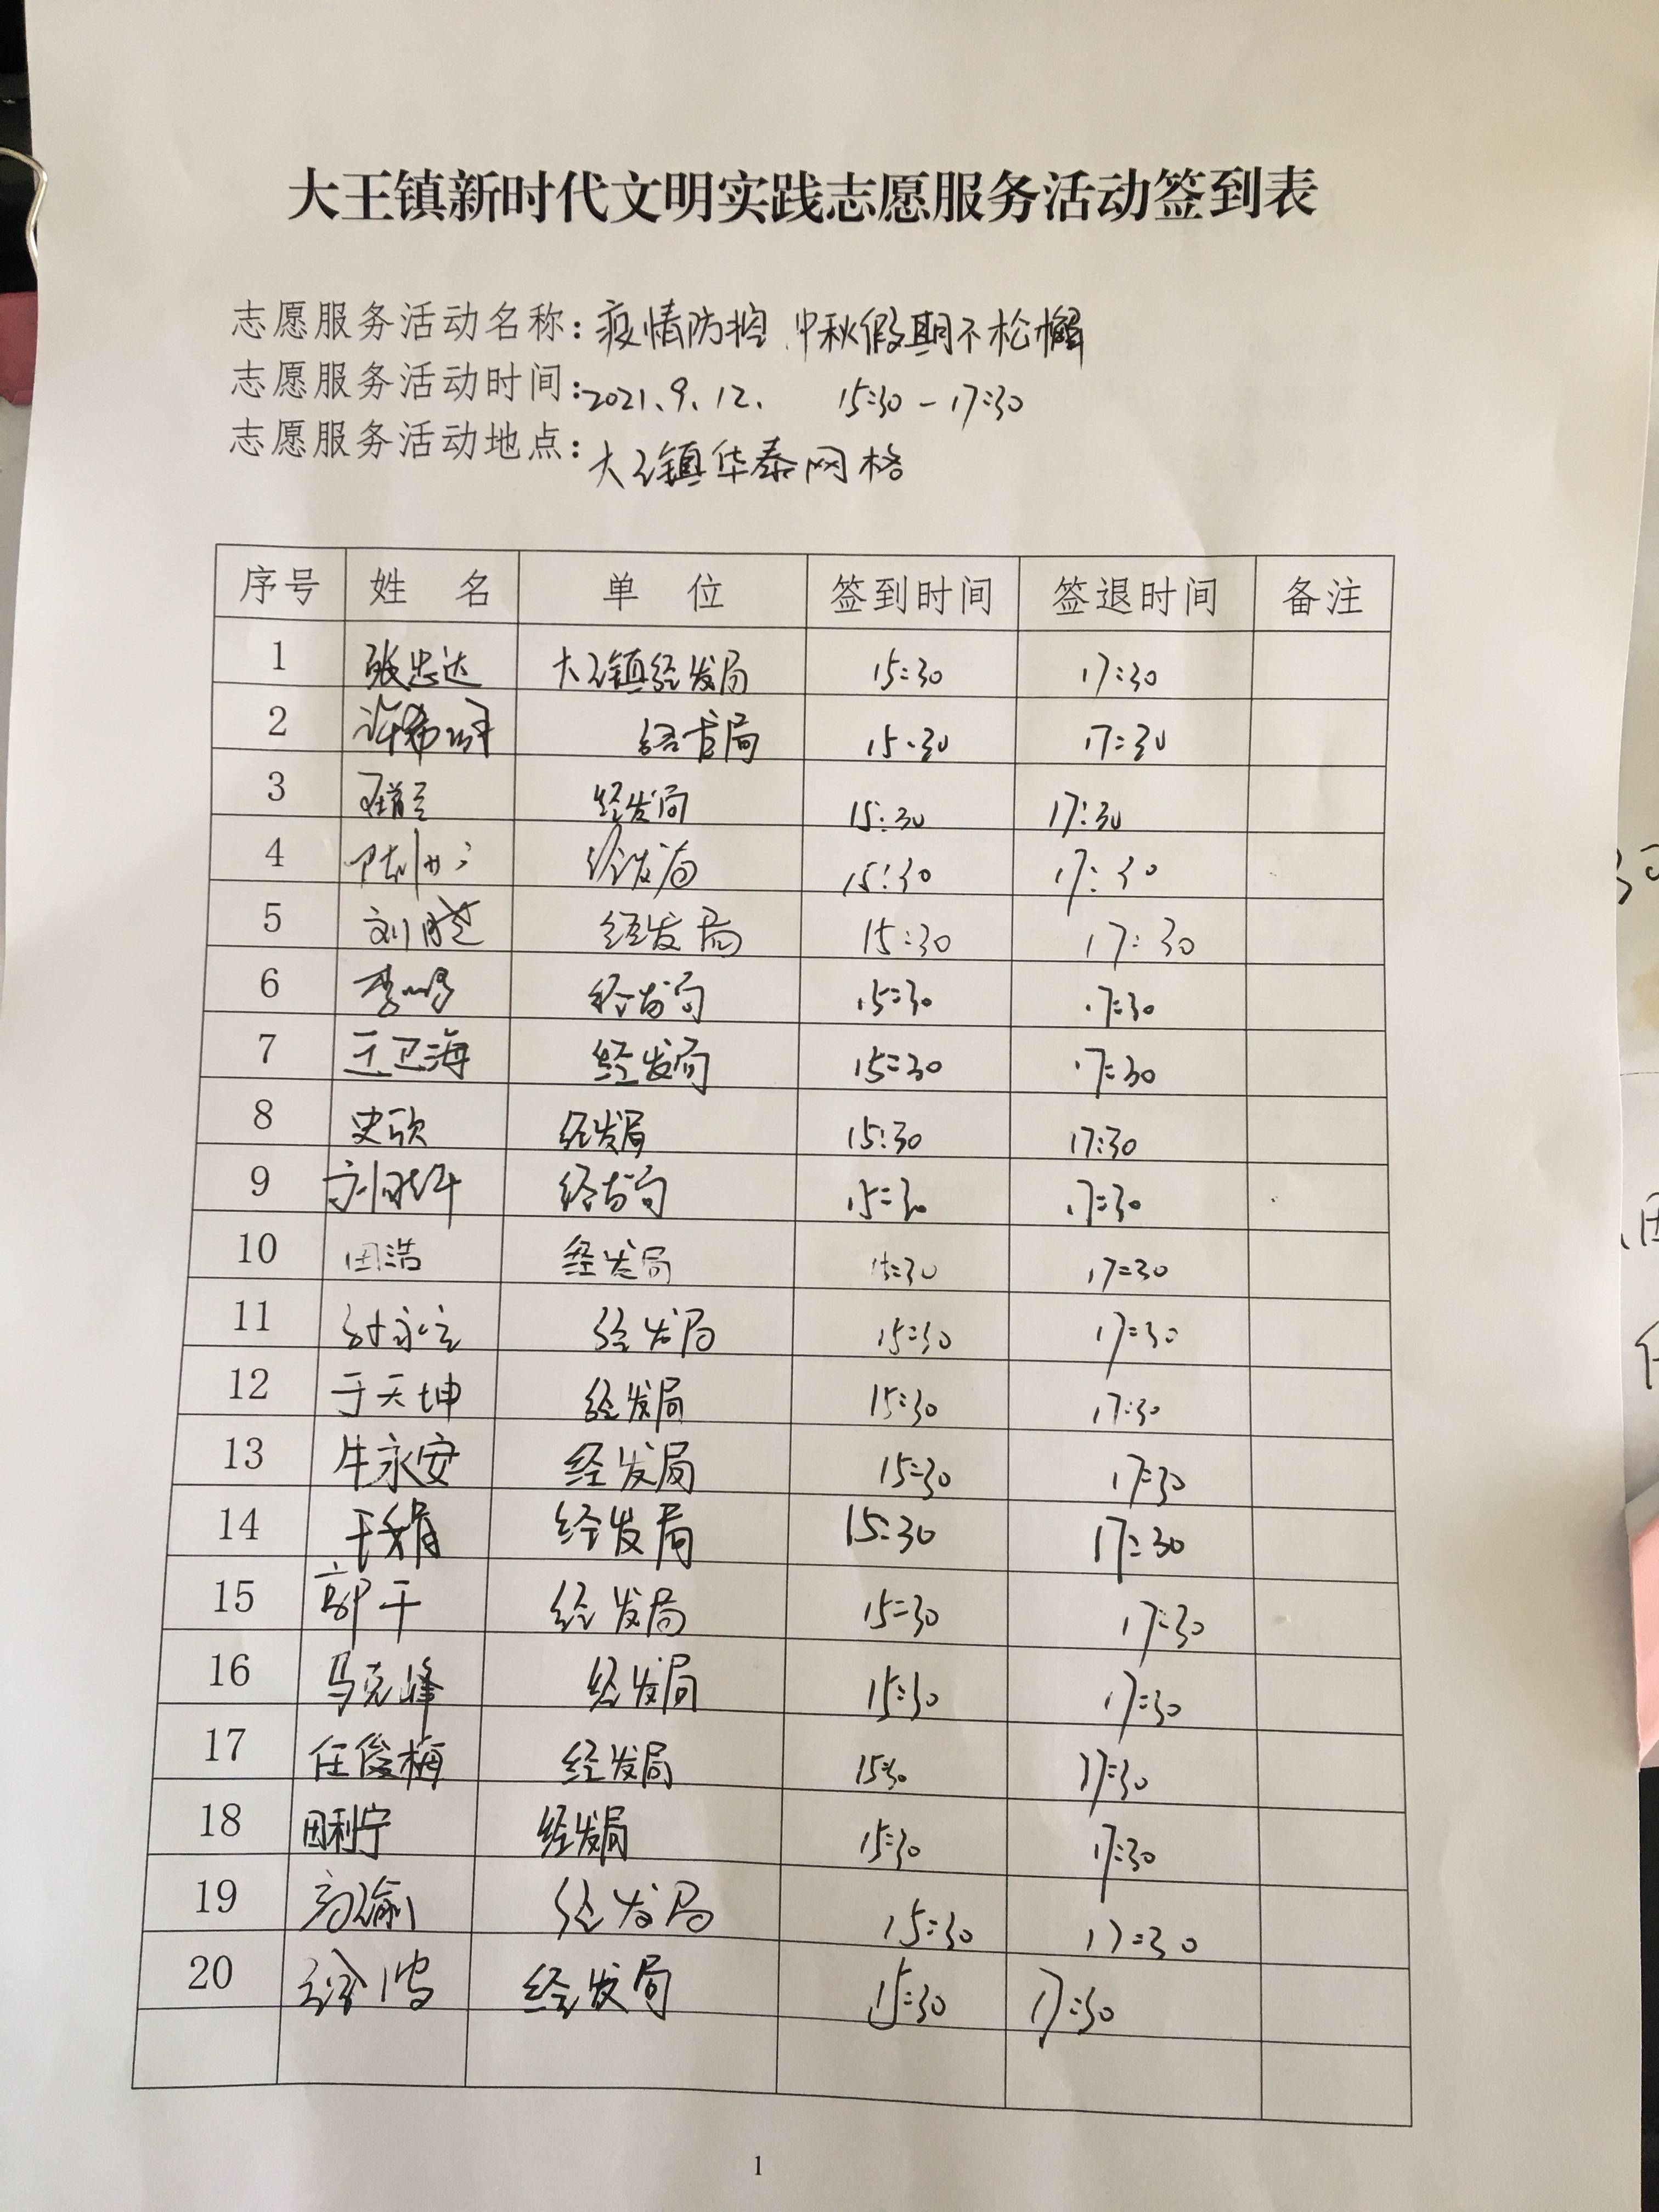 大王镇新时代文明实践志愿服务活动签到表
志愿服务活动名称:疫情防控 中秋假期不松懈
志愿服务活动时间:2021、9、12、 15:30-17:30
志愿服务活动地点:大王镇华泰网格
序号 姓 名 单 位 签到时间 签退时间 备注
1 张忠达 大王镇经发局 15:30 17:30
2 经发局 15:30 17:30
3 经发局 15:30 17:30
4 经发局 15:30 17:30
5 经发局 15:30 17:30
6 李鹏 经发局 15:30 17:30
7 王卫海 经发局 15:30 17:30
8 史欣 经发局 15:30 17:30
9 经发局 15:30 17:30
10 田浩 经发局 15:30 17:30
11 经发局 15:30 17:30
12 于天坤 经发局 15:30 17:30
13 牛永安 经发局 15:30 17:30
14 经发局 15:30 17:30
15 郭干 经发局 15:30 17:30
16 马克峰 经发局 15:30 17:30
17 任俊梅 经发局 15:30 17:30
18 田利宁 经发局 15:30 17:30
19 高瑜 经发局 15:30 17:30
20 经发局 15:30 17:30
1